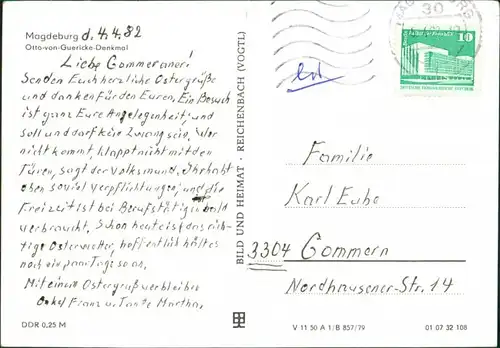 Magdeburg d. 4.4.82
Otto-von-Guericke-Denkmal
Liebe Gommeraner!
Senden Euch herzliche Ostergrüße
und danken für den Euren. Ein Besuch
ist ganz Eure Angelegenheit und
soll und darf kein Zwang sein. Wer
nicht kommt, klappt nicht mit den
Türen, sagt der Volksmund. Ihr habt
eben soviel Verpflichtungen, und die
Freizeit ist bei Berufstätigen bald
verbraucht. Schon heute ist das rich-
tige Osterwetter, hoffentlich hält es
noch ein paar Tage so an.
Mit einem Ostergruß verbleiben
Onkel Franz u. Tante Martha.
DDR 0,25 M
BILD UND HEIMAT · REICHENBACH (VOGTL)
30
10
Familie
Karl Eube
3304 Gommern
Nordhausener-Str. 14
V 11 50 A 1/B 857/79
01 07 32 108